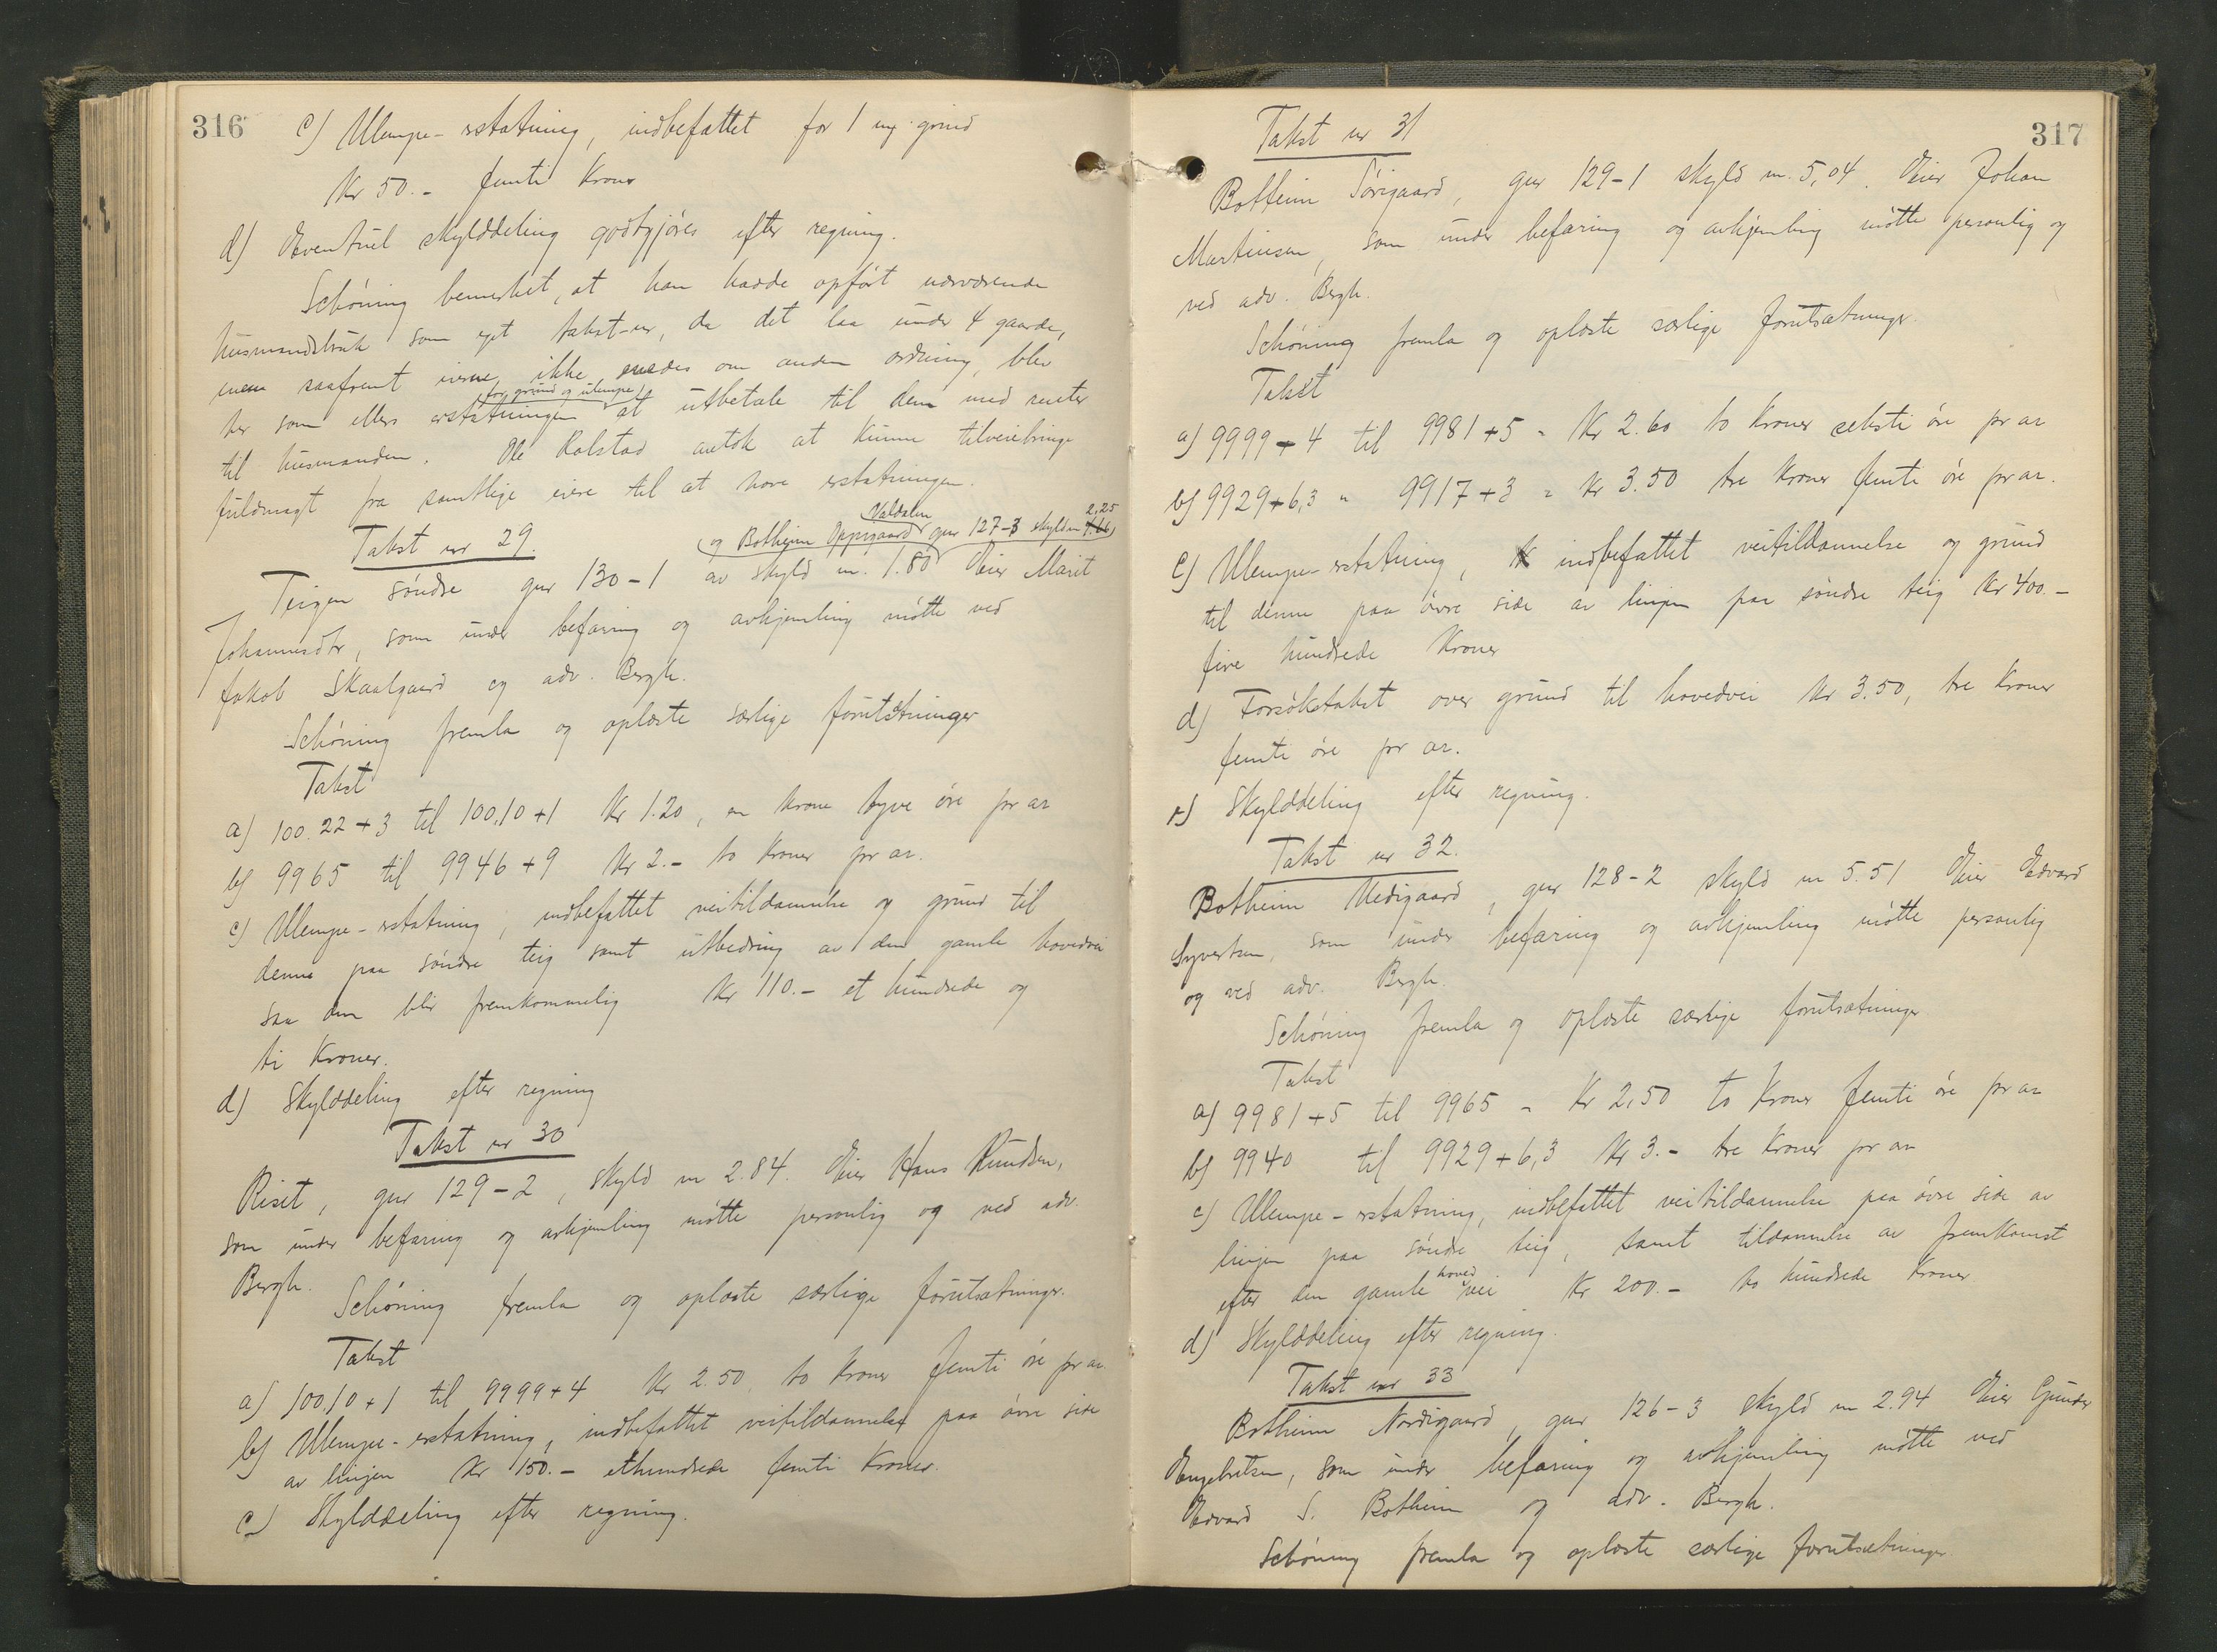 316
c) Ulempe-erstatning, indbefattet for 1 ny grind
Kr 50.- femti Kroner
d) Eventuel skylddeling godtgjøres efter regning.
Schøning bemerket, at han hadde opført nærværende
husmandsbruk som eget takst-nr, da det laa under 4 gaarde,
men saafremt eierne ikke enedes om anden ordning, blev
her som ellers erstatningen (for grund og ulempe) at utbetale til dem med renter
til husmanden. Ole Rolstad antok at kunne tilveiebringe
fuldmagt fra samtlige eiere til at heve erstatningen.
Takst nr 29.
(og Botheim Oppigaard Valdalen gnr 127-3 skyld m 1.66 2,25)
Teigen søndre gnr 130-1 av skyld m. 1.80 Eier Marit
Johannesdtr, som under befaring og avhjemling møtte ved
Jakob Skaalgaard og adv. Bergh.
Schøning fremla og oplæste særlige forutsætninger
Takst
a) 100.22+3 til 100,10+1 Kr 1.20, en krone tyve øre pr ar
b) 9965 til 9946+9 Kr 2.- to Kroner pr ar.
c) Ulempe-erstatning, indbefattet veitildannelse og grund til
denne paa søndre teig samt utbedring av den gamle hovedvei
saa den blir fremkommelig Kr 110.- et hundrede og
ti Kroner.
d) Skylddeling efter regning
Takst nr 30
Riset, gnr 129-2, skyld m 2.84. Eier Hans Knudsen,
som under befaring og avhjemling møtte personlig og ved adv.
Bergh.
Schøning fremla og oplæste særlige forutsætninger.
Takst
a) 100,10+1 til 9999+4 Kr 2.50 to Kroner femti øre pr ar.
b) Ulempe-erstatning, indbefattet veitildannelse paa øvre side
av linjen Kr 150.- ethundrede femti Kroner.
c) Skylddeling efter regning.
317
Takst nr 31
Botheim Sørigaard, gnr 129-1 skyld m. 5,04. Eier Johan
Martinsen, som under befaring og avhjemling møtte personlig og
ved adv. Bergh.
Schøning fremla og oplæste særlige forutsætninger.
Takst
a) 9999+4 til 9981+5 = Kr 2.60 to Kroner seksti øre pr ar
b) 9929+6,3 " 9917+3 = Kr 3.50 tre Kroner femti øre pr ar.
c) Ulempe-erstatning, indbefattet veitildannelse og grund
til denne paa øvre side av linjen paa søndre teig Kr 400.-
fire hundrede Kroner
d) Forsøkstakst over grund til hovedvei Kr 3.50, tre Kroner
femti øre pr ar.
e) Skylddeling efter regning.
Takst nr 32.
Botheim Medigaard, gnr 128-2 skyld m 5.51 Eier Edvard
Syvertsen, som under befaring og avhjemling møtte personlig
og ved adv. Bergh.
Schøning fremla og oplæste særlige forutsætninger
Takst
a) 9981+5 til 9965 = Kr 2,50 to Kroner femti øre pr ar
b) 9940 til 9929+6,3 Kr 3.- tre Kroner pr ar
c) Ulempe-erstatning, indbefattet veitildannelse paa øvre side av
linjen paa søndre teig, samt tildannelse av fremkomst
efter den gamle hovedvei Kr 200.- to hundrede Kroner
d) Skylddeling efter regning.
Takst nr 33
Botheim Nordigaard, gnr 126-3 skyld m 2.94 Eier Gunder
Engebretsen, som under befaring og avhjemling møtte ved
Edvard S. Botheim og adv. Bergh.
Schøning fremla og oplæste særlige forutsætninger.